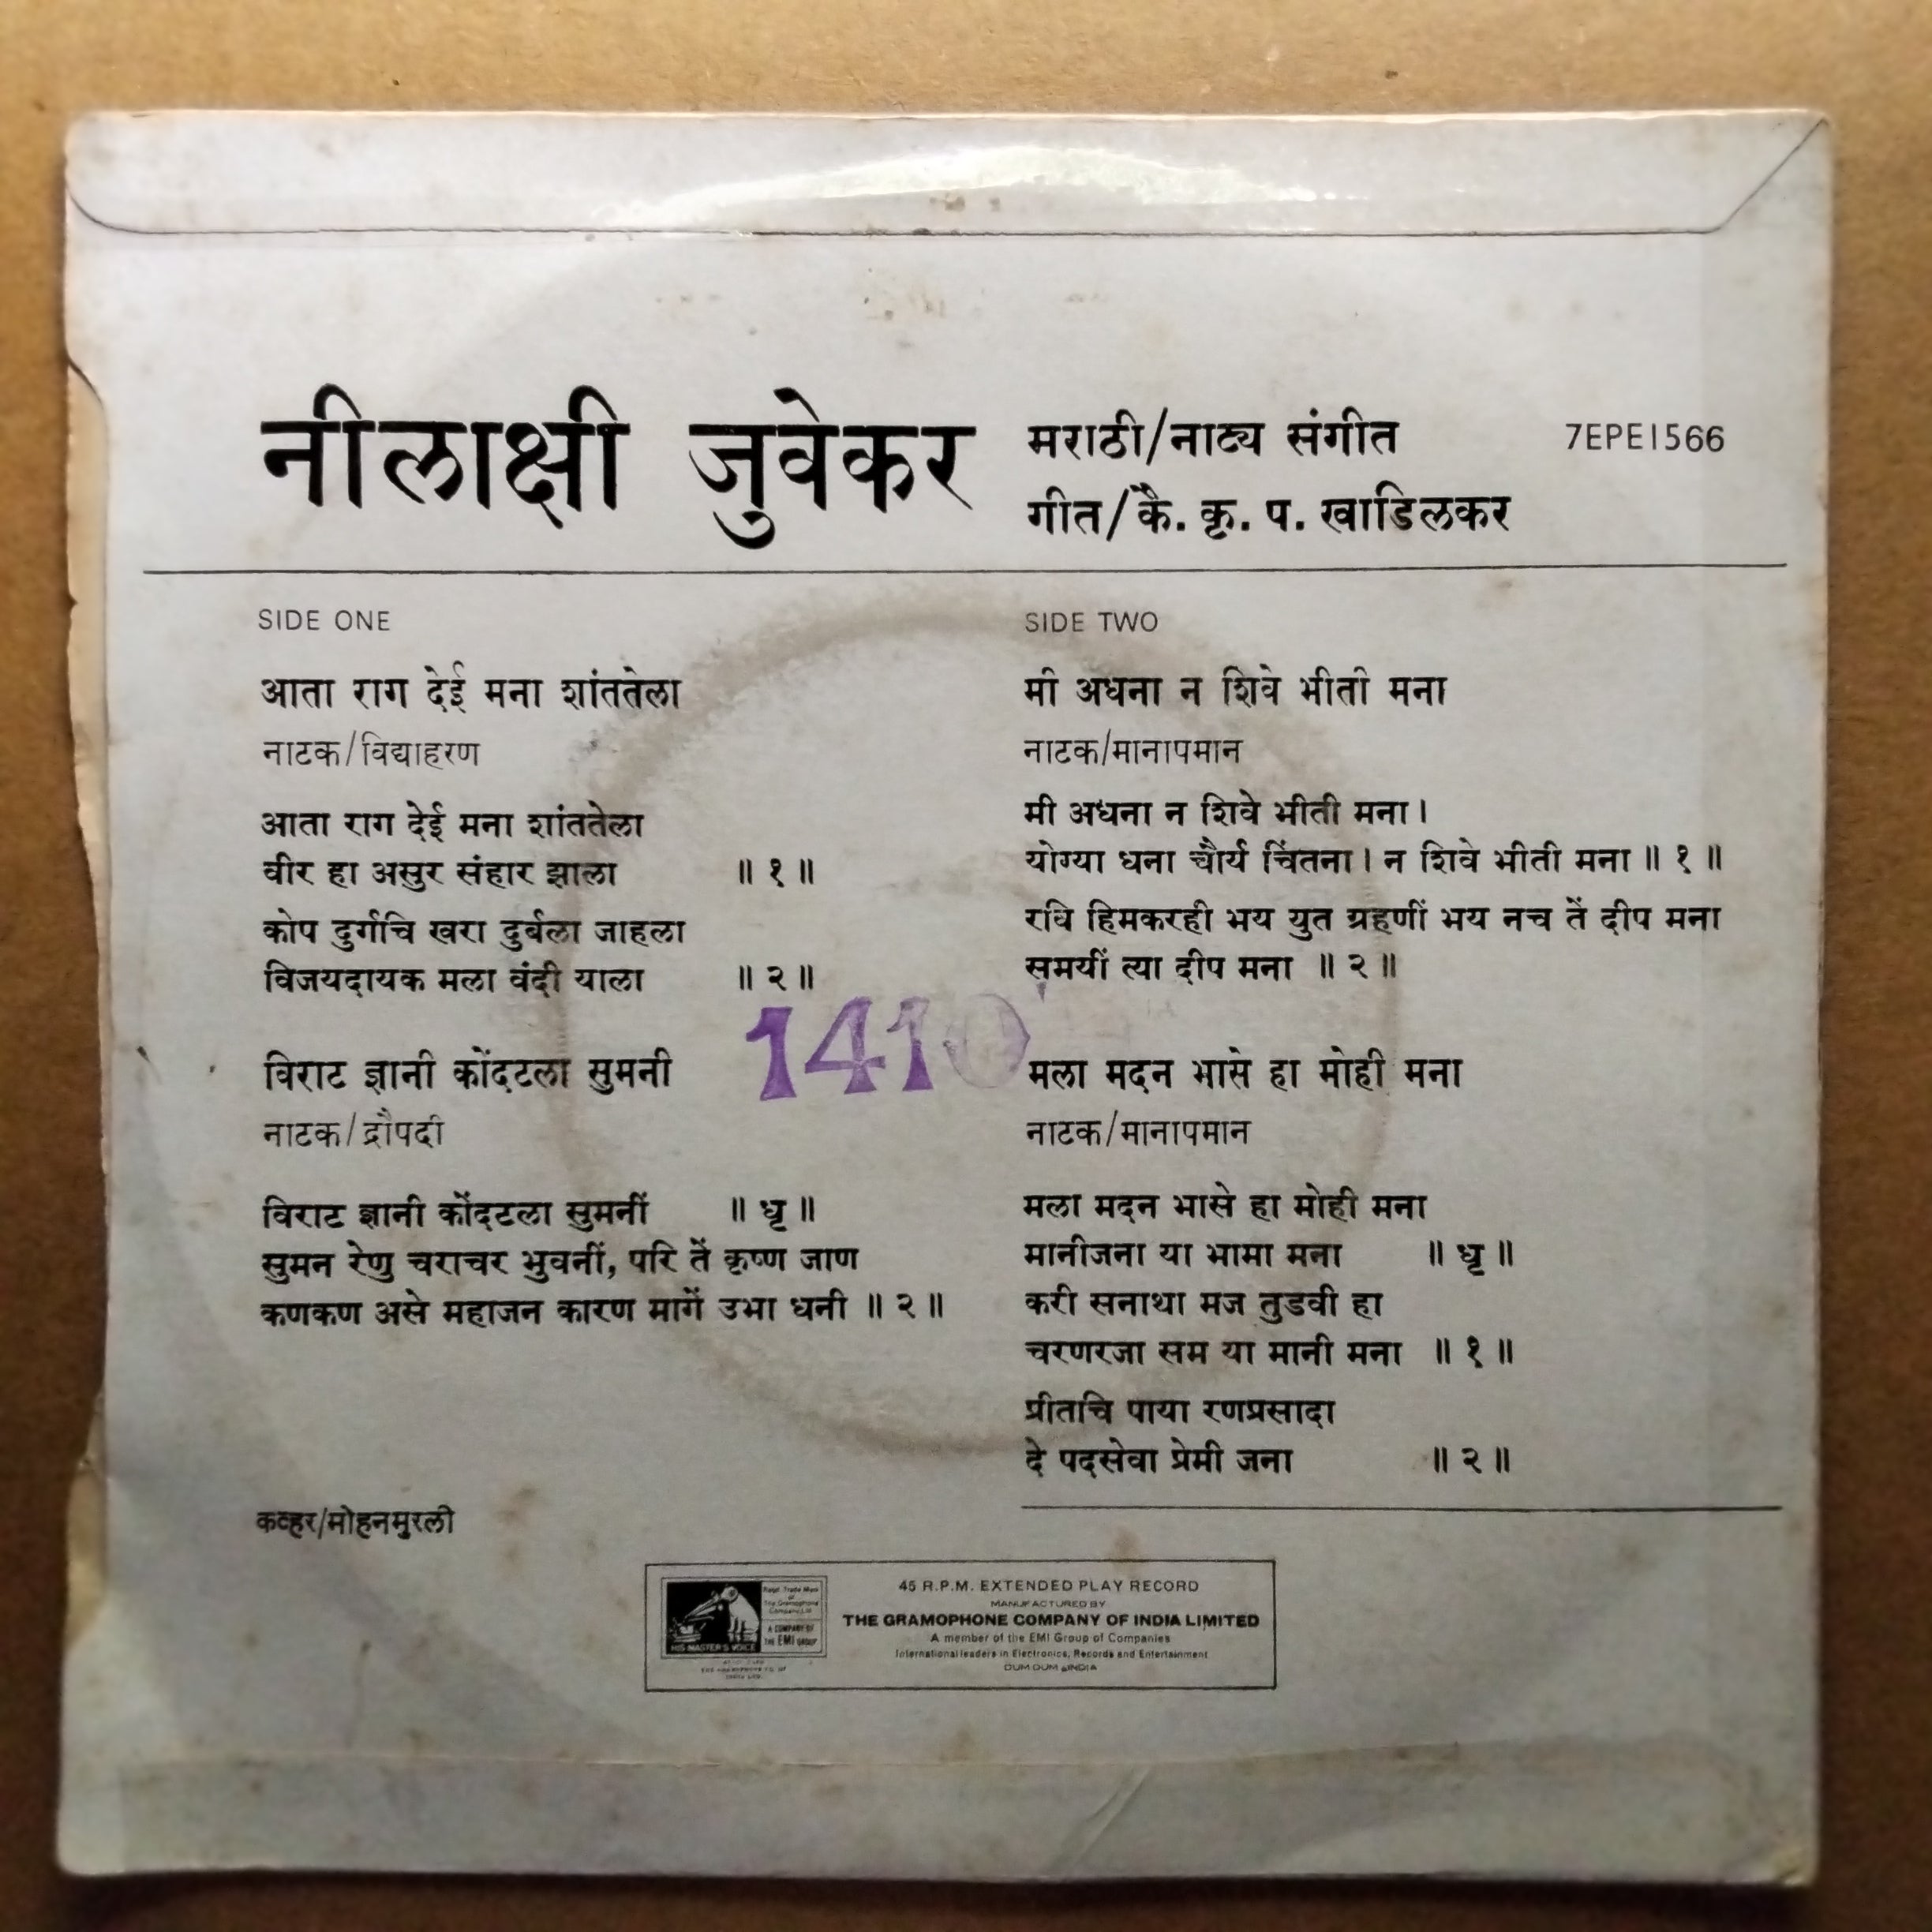 नीलाक्षी जुवेकर
मराठी/नाट्य संगीत
7EPE1566
गीत/कै. कृ. प. खाडिलकर
SIDE ONE
आता राग देई मना शांततेला
नाटक/विद्याहरण
आता राग देई मना शांततेला
वीर हा असुर संहार झाला ॥ १ ॥
कोप दुर्गचि खरा दुर्बला जाहला
विजयदायक मला वंदी याला ॥ २ ॥
विराट ज्ञानी कोंदटला सुमनी
नाटक/द्रौपदी
विराट ज्ञानी कोंदटला सुमनीं ॥ धृ ॥
सुमन रेणु चराचर भुवनीं, परि तें कृष्ण जाण
कणकण असे महाजन कारण मागें उभा धनी ॥ २ ॥
कव्हर/मोहनमुरली
1410
SIDE TWO
मी अधना न शिवे भीती मना
नाटक/मानापमान
मी अधना न शिवे भीती मना।
योग्या धना चौर्य चिंतना। न शिवे भीती मना ॥ १ ॥
रवि हिमकरही भय युत ग्रहणीं भय नच तें दीप मना
समयीं त्या दीप मना ॥ २ ॥
मला मदन भासे हा मोही मना
नाटक/मानापमान
मला मदन भासे हा मोही मना
मानीजना या भामा मना ॥ धृ ॥
करी सनाथा मज तुडवी हा
चरणरजा सम या मानी मना ॥ १ ॥
प्रीतचि पाया रणप्रसादा
दे पदसेवा प्रेमी जना ॥ २ ॥
HIS MASTER'S VOICE
Regd. Trade Mark
of
The Gramophone
Company Ltd
A COMPANY OF
THE EMI GROUP
45 R.P.M. EXTENDED PLAY RECORD
MANUFACTURED BY
THE GRAMOPHONE COMPANY OF INDIA LIMITED
A member of the EMI Group of Companies
International leaders in Electronics, Records and Entertainment
DUM DUM INDIA